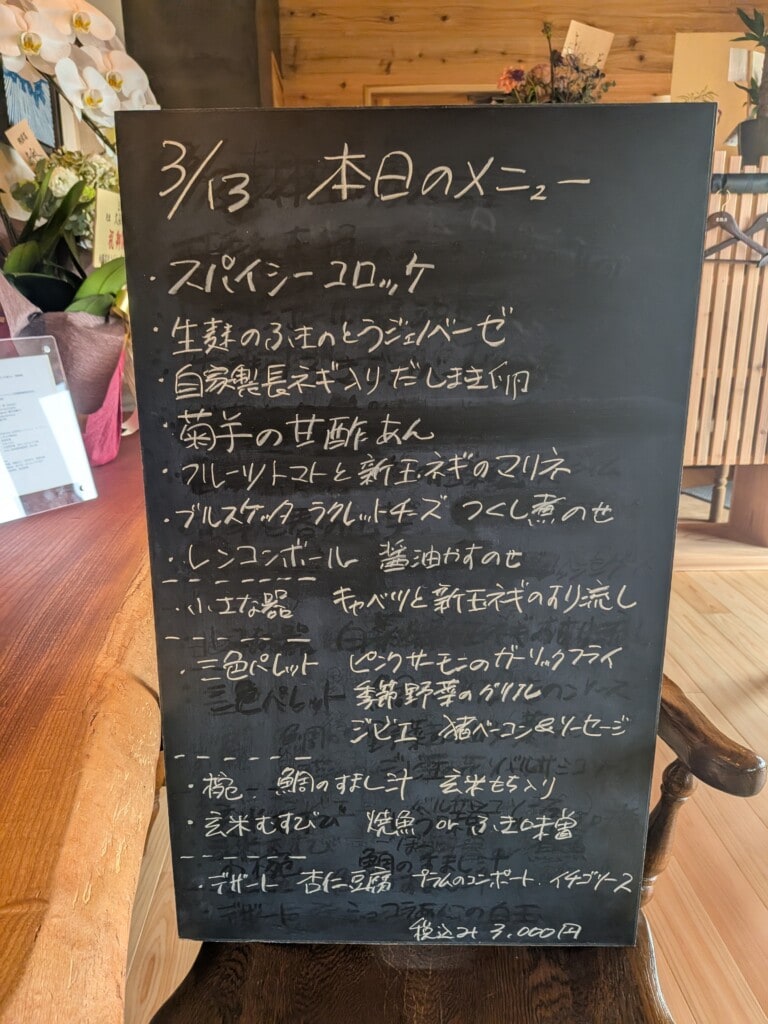 3/13 本日のメニュー
・スパイシーコロッケ
・生麩のふきのとうジェノベーゼ
・自家製長ネギ入りだしまき卵
・菊芋の甘酢あん
・フルーツトマトと新玉ネギのマリネ
・ブルスケッタ ラクレットチーズ つくし煮のせ
・レンコンボール 醤油かすのせ
・小さな器 キャベツと新玉ネギのすり流し
・三色パレット ピンクサーモンのガーリックフライ
季節野菜のグリル
ジビエ 猪ベーコン&ソーセージ
・椀 鯛のすまし汁 玄米もち入り
・玄米むすび 焼魚 or ふき味噌
・デザート 杏仁豆腐 プラムのコンポート・イチゴソース
税込み 3,000円